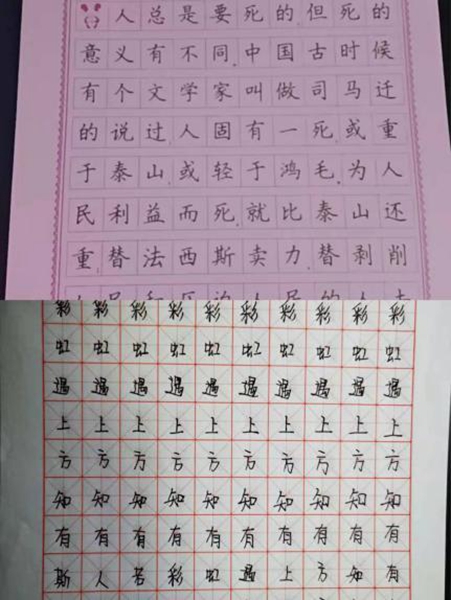 人总是要死的,但死的
意义有不同.中国古时候
有个文学家叫做司马迁
的说过,人固有一死,或重
于泰山,或轻于鸿毛.为人
民利益而死,就比泰山还
重;替法西斯卖力,替剥削
彩彩彩彩彩彩彩彩彩彩
虹虹虹虹虹虹虹虹虹虹
遇遇遇遇遇遇遇遇遇遇
上上上上上上上上上上
方方方方方方方方方方
知知知知知知知知知知
有有有有有有有有有有
斯人若彩虹遇上方知有